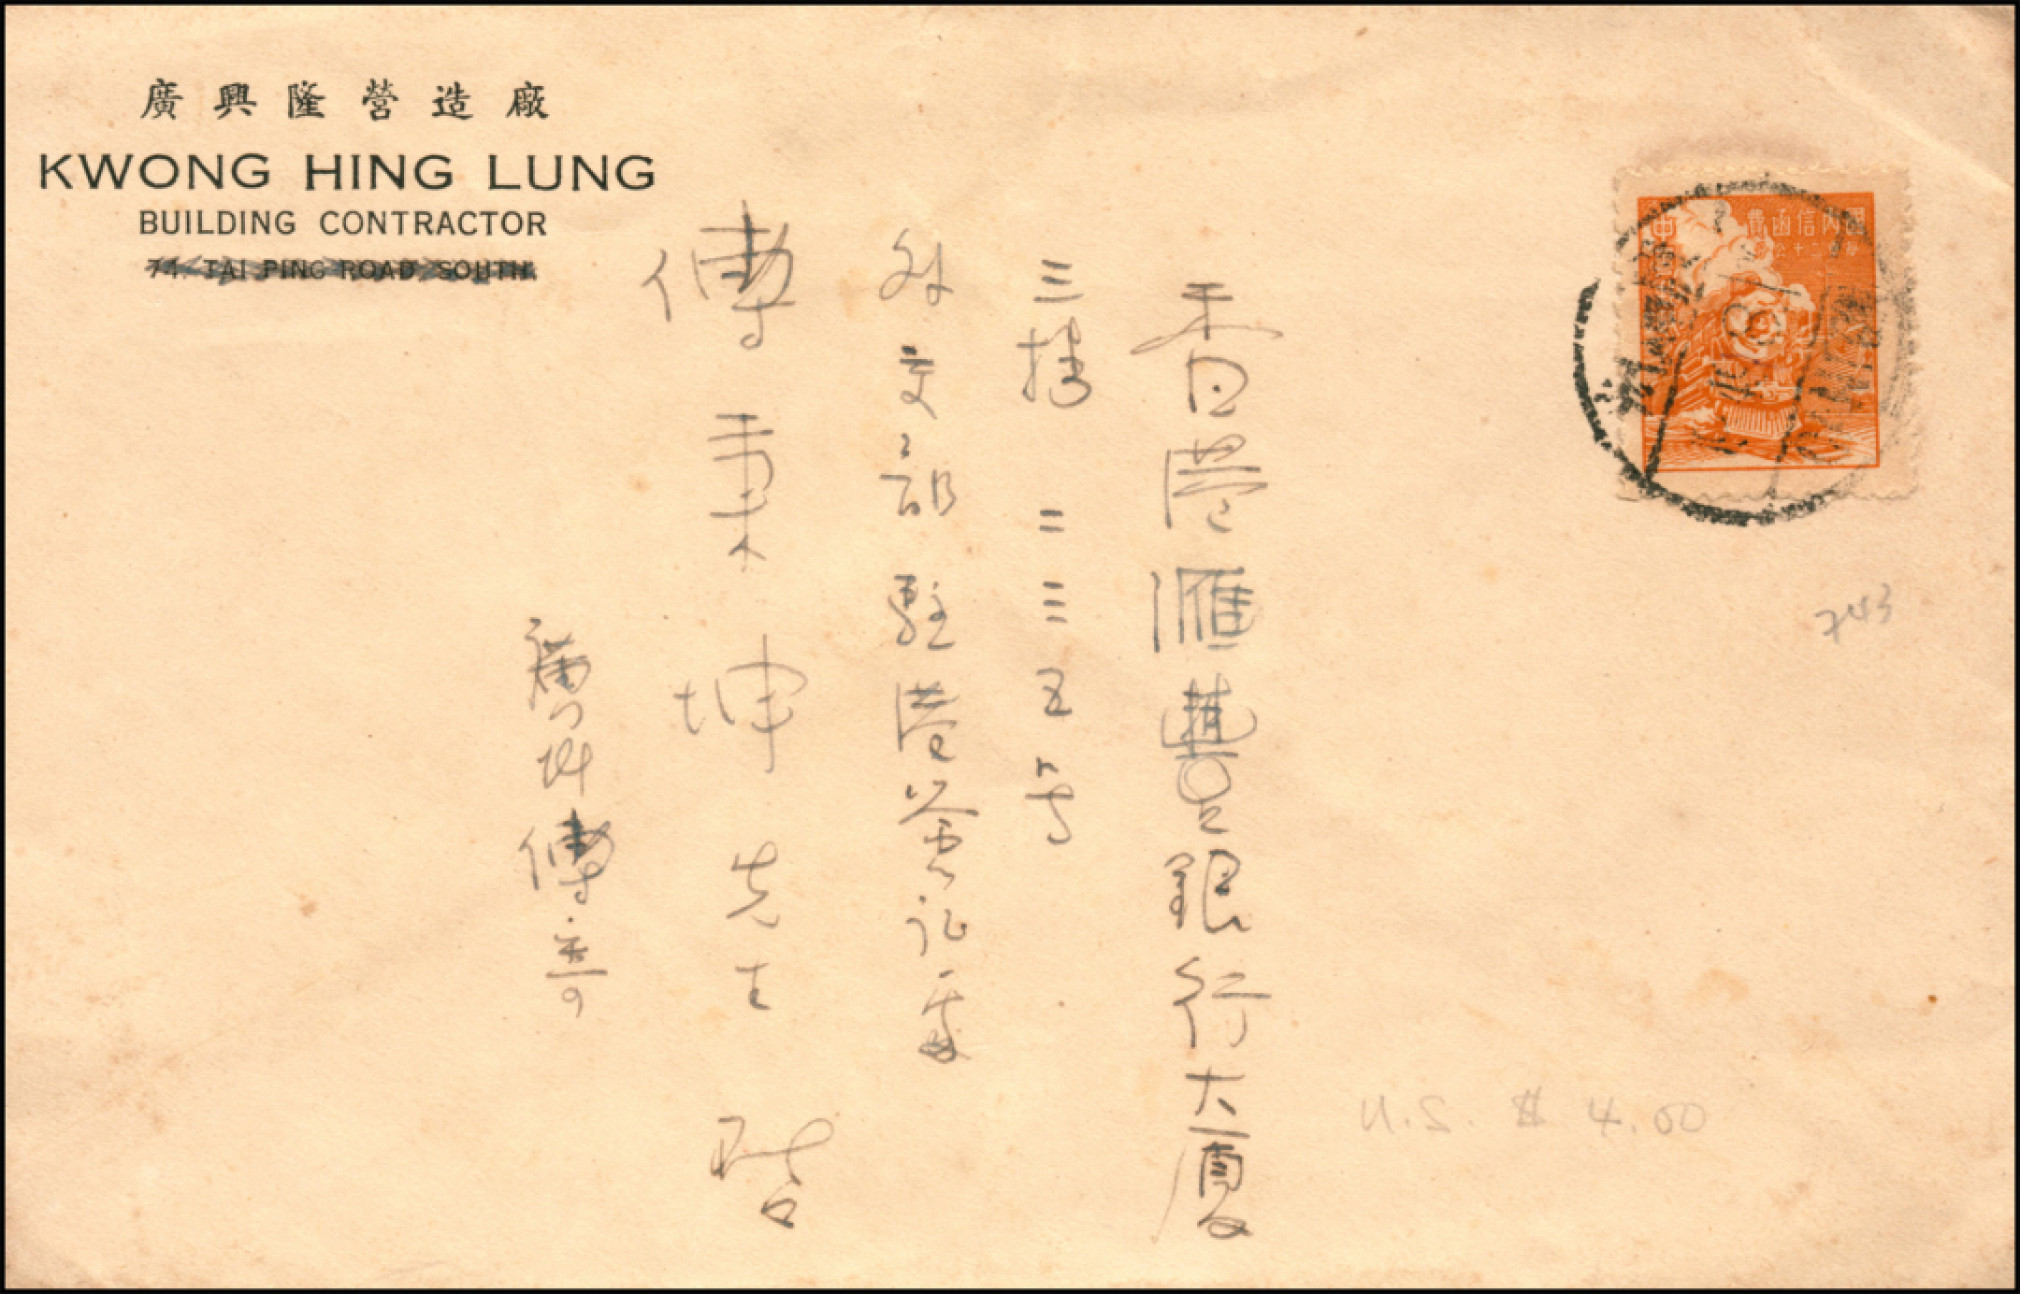 廣興隆營造廠
KWONG HING LUNG
BUILDING CONTRACTOR
74. TAI PING ROAD SOUTH
國內信函費
香港滙豐銀行大廈
三樓 二三五号
外交部駐港簽証處
傅秉坤先生 啓
廣州傅寄
743
U.S. $ 4.00